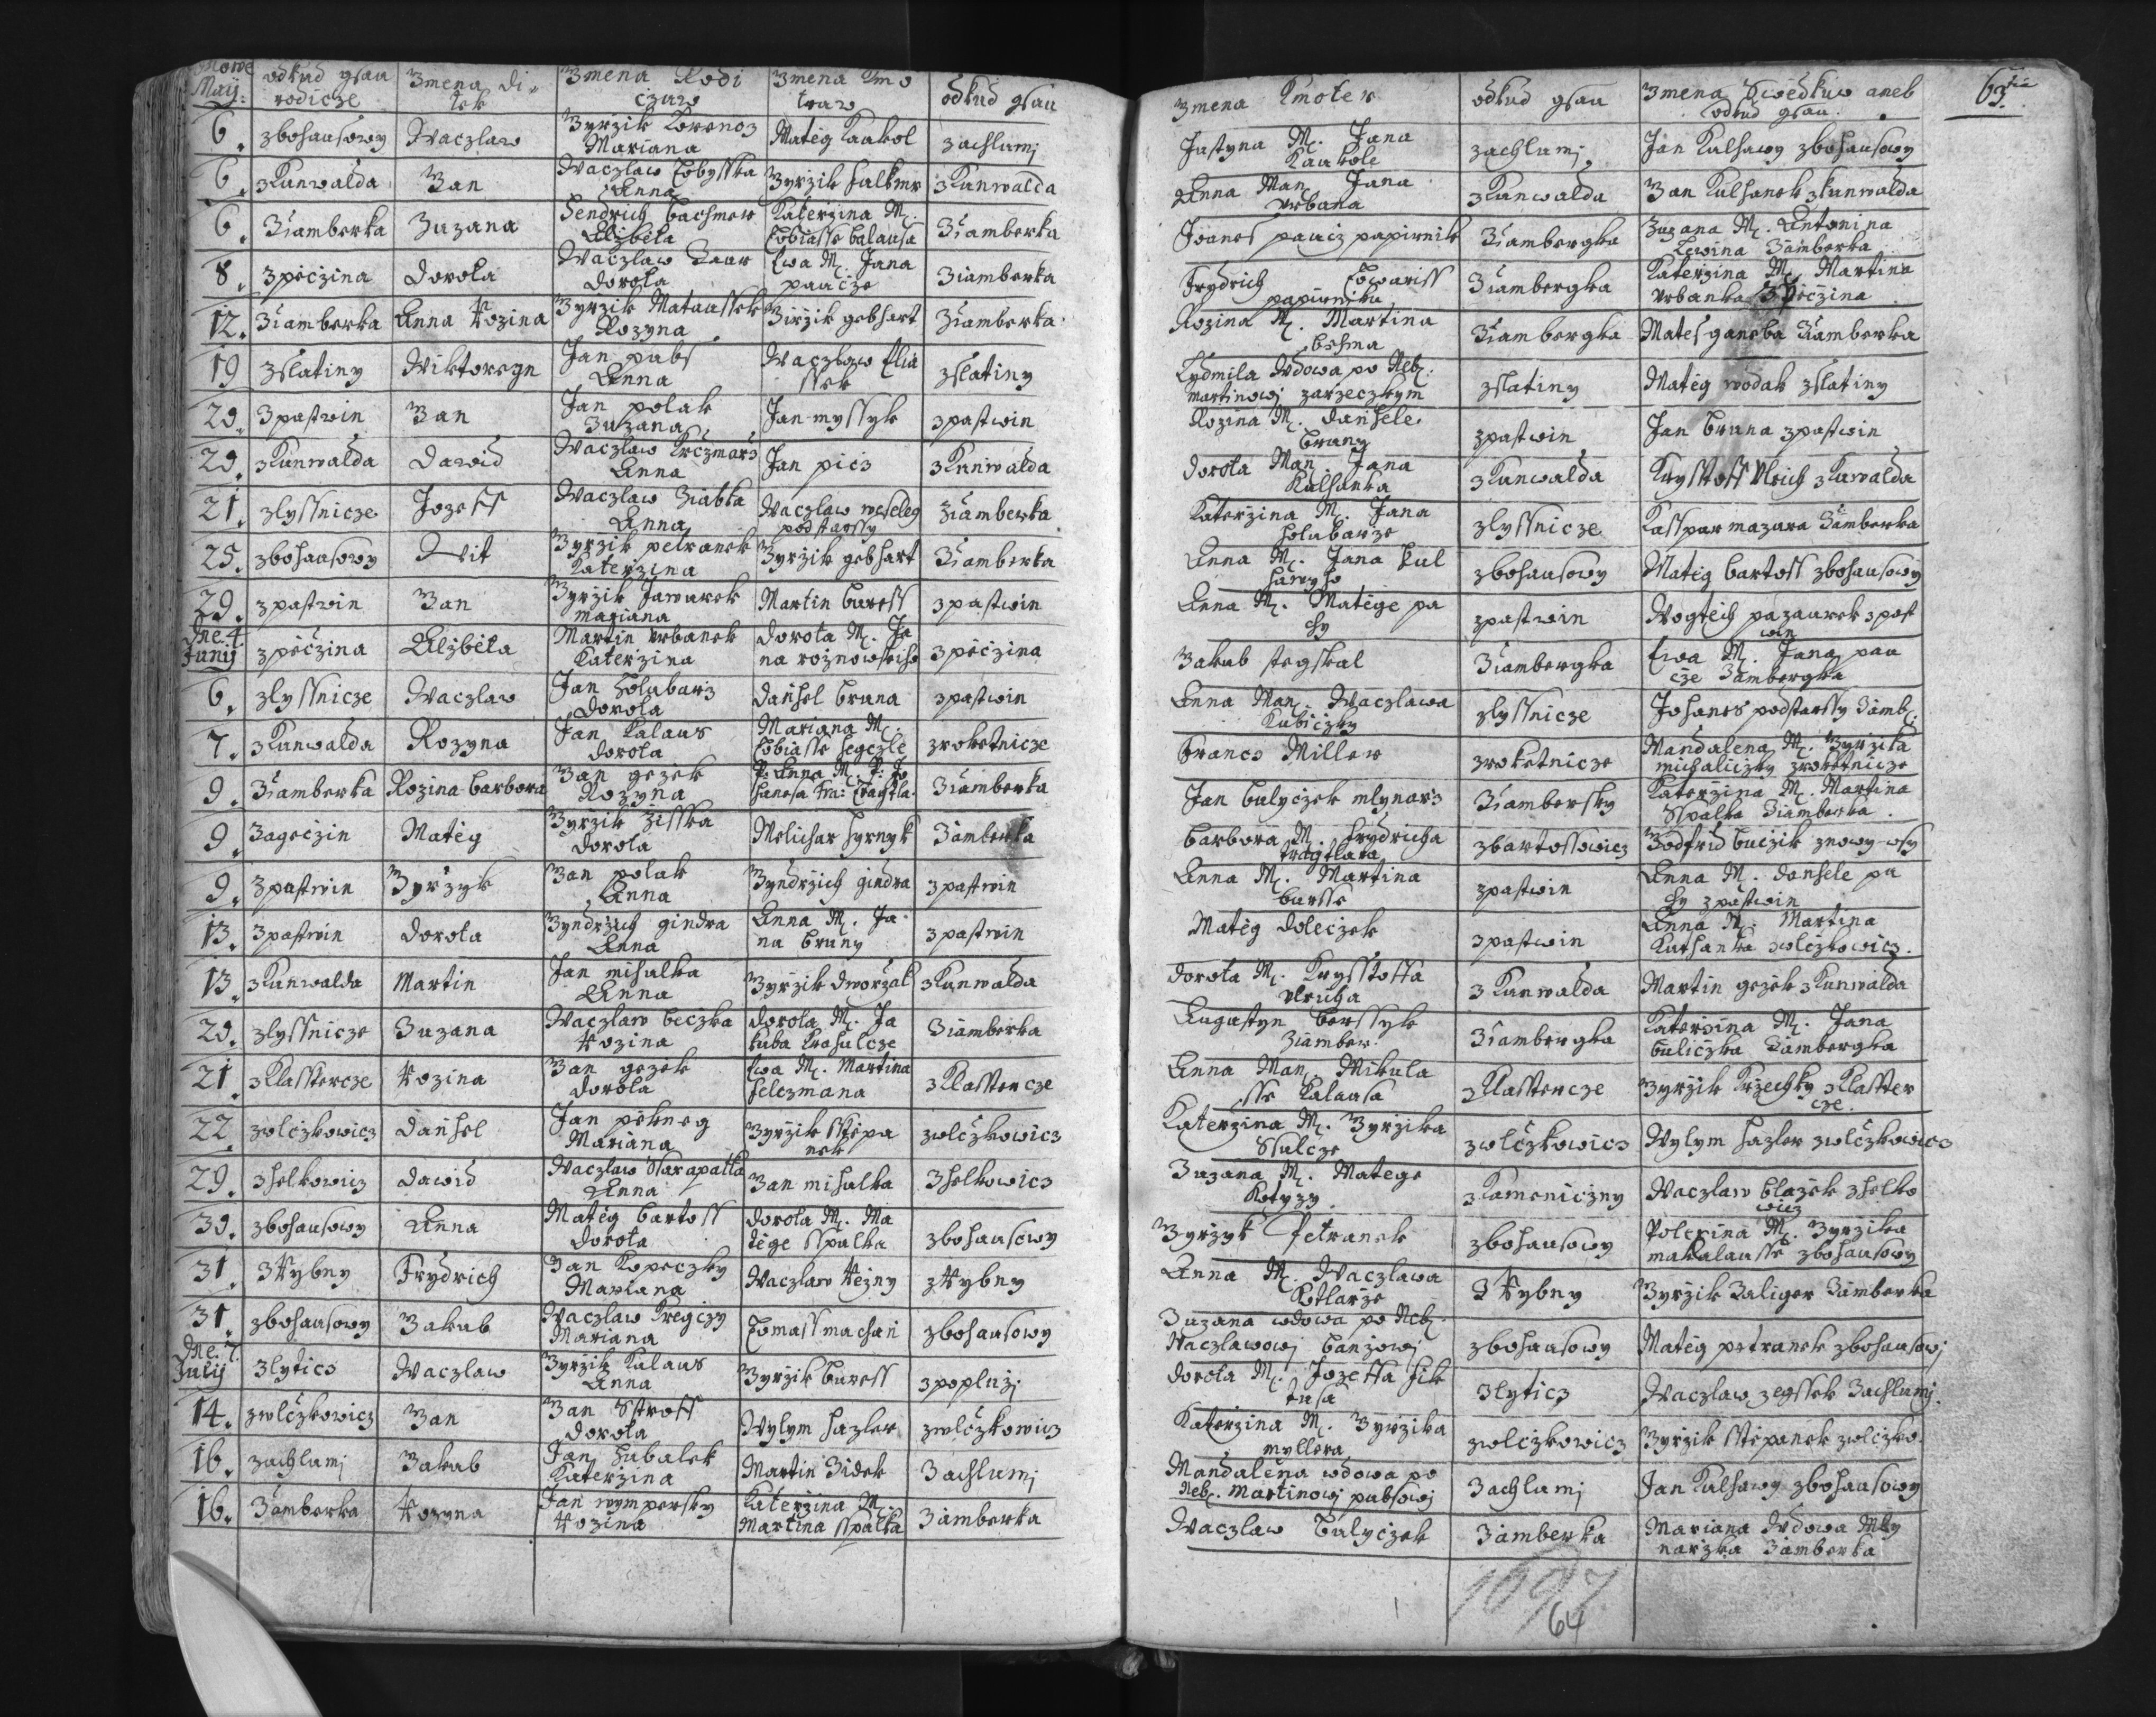 May: odkud gsau rodicze 3mena di tek 3mena Rodi czuw 3mena kmo truw odkud gsau
6. zbohausowy Waczlaw 3yrzik Lorencz Mariana Matieg Kaukol zachlumj
6. zKunwalda 3an Waczlaw Anna 3yrzik zKunwalda
6. 3iamberka 3uzana Hendrich Elizbieta Katerzina M. Tobiasse balausa 3iamberka
8. zpieczina dorota Waczlaw dorota Ewa M. Jana paucze 3iamberka
12. 3iamberka Anna Rozina 3yrzik Mataussek Rozyna 3irzik gebhart 3iamberka
19 zslatiny Wiktoregn Jan pabs Anna Waczlaw Elia ssek zslatiny
20. zpastwin 3an Jan polak 3uzana Jan myssyk zpastwin
20. zKunwalda dawid Waczlaw Krczmarz Anna Jan picz zKunwalda
21. zlyssnicze Jozeff Waczlaw 3iabka Anna Waczlaw weseleg podstarssy 3iamberka
25. zbohausowy Wit 3yrzik petranek Katerzina 3yrzik gebhart 3iamberka
29. zpastwin 3an 3yrzik Jawurek mariana Martin buress zpastwin
Dne. 4. Junij zpieczina Elizbieta Martin urbanek Katerzina dorota M. Ja na roznowskiho zpieczina
6. zlyssnicze Waczlaw Jan holubarz dorota daniel bruna zpastwin
7. zKunwalda Rozyna Jan Kalaus dorota Mariana M. Tobiasse hegczle zroketnicze
9. 3iamberka Rozina barbora 3an gezek Rozyna P. Anna M. P. Jo hanesa 3iamberka
9. 3ageczin Matieg 3yrzik 3isska dorota Melichar hyrnyk 3iamberka
9. zpastwin 3yrzyk 3an polak Anna 3yndrzich gindra zpastwin
13. zpastwin dorota 3yndrzich gindra Anna Anna M. Ja na bruny zpastwin
13. zKunwalda Martin Jan mihulka Anna 3yrzik dworzak zKunwalda
20. zlyssnicze 3uzana Waczlaw beczka Rozina dorota M. Ja kuba krahulcze 3iamberka
21. zKlasstercze Rozina 3an gezek dorota Ewa M. Martina helczmana zKlasstercze
22. zwlczkowicz daniel Jan piekneg Mariana 3yrzik Sstiepa nek zwlczkowicz
29. zhelkowicz dawid Waczlaw Skarapatka Anna 3an mihulka zhelkowicz
30. zbohausowy Anna Matieg bartoss dorota dorota M. Ma tiege sspalka zbohausowy
31. zRybny Frydrich 3an Kopeczky Mariana Waczlaw Rezny zRybny
31. zbohausowy 3akub Waczlaw Kregczy Mariana Tomass machan zbohausowy
Dne. 7. Julij zlyticz Waczlaw 3yrzik Kalaus Anna 3yrzik buress zpopluzj
14. zwlczkowicz 3an 3an Stross dorota Wylym hazler zwlczkowicz
16. zachlumj 3akub Jan hubalek Katerzina Martin 3idek 3achlumj
16. 3amberka Rozyna Jan wympersky Rozina Katerzina M. Martina sspalka 3iamberka
3mena Kmoter odkud gsau 3mena Swiedkuw aneb odkud gsau. 63
Justyna M. Jana Kaukole zachlumj Jan Kulhawy zbohausowy
Anna Man. Jana urbana zKunwalda 3an Kulhanek zKunwalda
Joanes paucz papirnik 3iambergka 3uzana M. Antonina Lewina 3amberka
Frydrich Towariss papirnika 3iambergka Katerzina M. Martina urbanka 3pieczina
Rozina M. Martina behma 3iambergka Mates ganeba 3iamberka
Lydmila Wdowa po Neb. martinowj zarzeczkym zslatiny Matieg wodak zslatiny
Rozina M. daniele bruny zpastwin Jan bruna zpastwin
dorota Man. Jana Kulhanka zKunwalda Krysstoff Ulrich zKunwalda
Katerzina M. Jana holubarze zlyssnicze Kasspar mazura 3amberka
Anna M. Jana Kul haweho zbohausowy Matieg bartoss zbohausowy
Anna M. Matiege pa chy zpastwin Wogtiech pazaurek zpast win
3akub stegskal 3iambergka Ewa M. Jana pau cze 3iambergka
Anna Man. Waczlawa Kubiczky zlyssnicze Johanes podstarssy 3iamb.
Francz Miller zroketnicze Mandalena M. 3yrzika michaliczky zroketnicze
Jan bulyczek mlynarz 3iambersky Katerzina M. Martina Sspalka 3iamberka
barbora M. Frydricha zbartossowicz 3odfrid buczik znowy wsy
Anna M. Martina bursse zpastwin Anna M. daniele pa chy zpastwin
Matieg doleczek zpastwin Anna M. Martina Kuthanka zwlczkowicz
dorota M. Krysstoffa ulricha zKunwalda Martin gezek zKunwalda
Augustyn berssyk 3iamber. 3iambergka Katerzina M. Jana buliczka 3iambergka
Anna Man. Mikula sse Kalausa zKlasstercze 3yrzik Krzechky zKlasster cze.
Katerzina M. 3yrzika Ssulcze zwlczkowicz Wylym hazler zwlczkowicz
3uzana M. Matiege Kotyzy zKameniczny Waczlaw blazek zhelko wicz
3yrzyk Petranek zbohausowy Polexina M. 3yrzika makalausse zbohausowy
Anna M. Waczlawa Kotlarze zRybny 3yrzik 3aliger 3iamberka
3uzana wdowa po Neb. Waczlawowj banzowj zbohausowy Matieg petranek zbohausowj
dorota M. Jozeffa fik tusa zlyticz Waczlaw zegssek 3achlumj
Katerzina M. 3yrzika myllera zwlczkowicz 3yrzik Sstiepanek zwlczko.
Mandalena wdowa po Neb. Martinowj pabsowj 3achlumj Jan Kulhawy zbohausowy
Waczlaw bulyczek 3iamberka Mariana Wdowa Mly narzka 3iamberka
1697
64